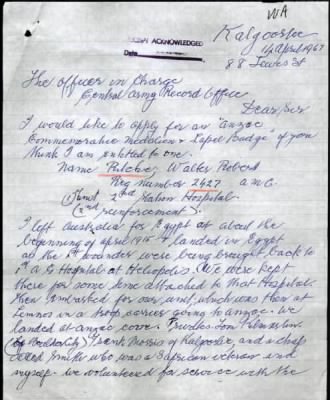 WA
Kalgoorlie
14 April 1967
ACKNOWLEDGED
Date
88 Lewis St
The Officer in Charge
Central Army Record Office
Dear Sir
I would like to apply for an "Anzac
Commemorative Medallion & Lapel Badge" if you
think I am entitled to one.
Name Walter Robert
Reg number 2427 A.M.C.
2nd Station Hospital.
(2nd reinforcement).
I left Australia for Egypt at about the
beginning of April 1915 & landed in Egypt
as the 1st wounded were being brought back to
1st A G Hospital at Heliopolis. We were kept
there for some time attached to that Hospital.
then embarked for our unit, which was then at
Lemnos in a troop carrier going to Anzac. We
landed at Anzac Cove.
(of Boulder City) Frank Morris of Kalgoorlie, and a chap
called Smith who was a S African veteran and
myself. We volunteered for service with the